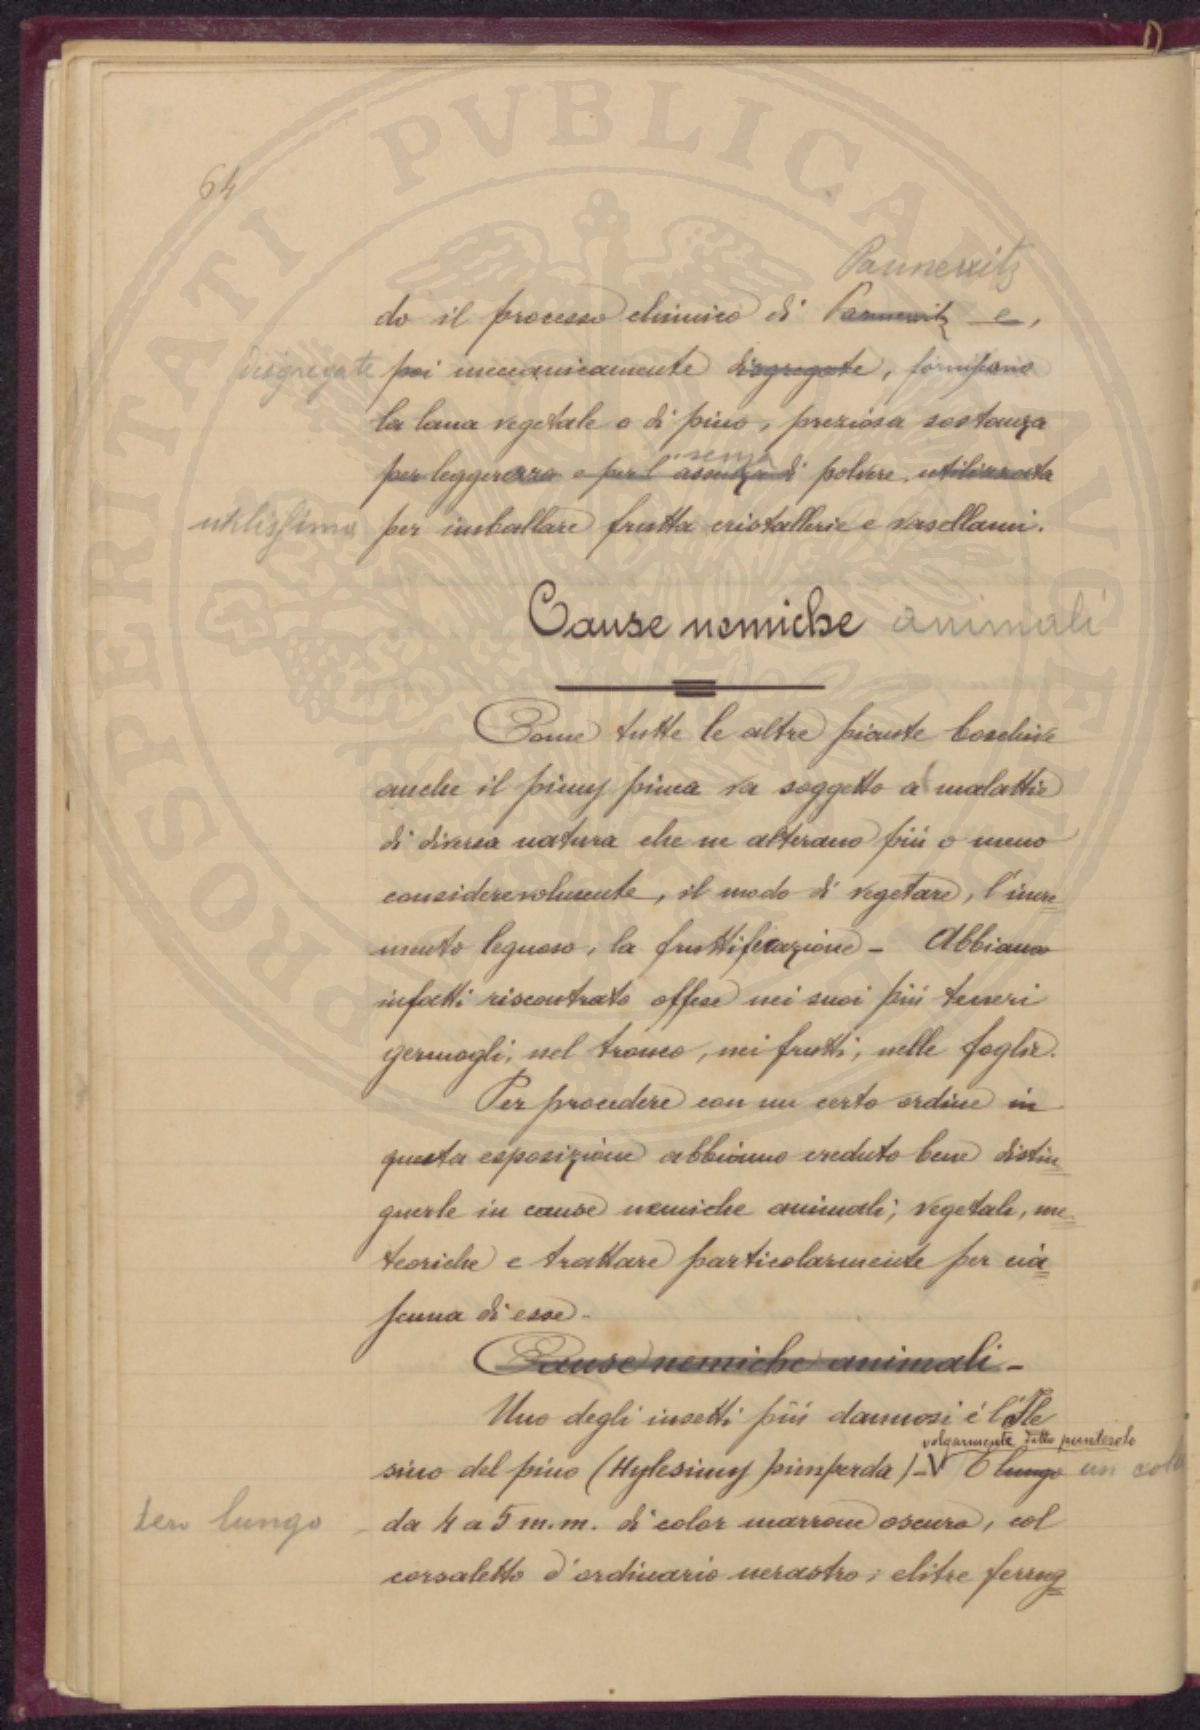 64
Pannewitz
do il processo chimico di Pannewitz e,
disgregate poi meccanicamente disgregate, forniscono
la lana vegetale o di pino, preziosa sostanza
senza
per leggerezza e per l'assenza di polvere, utilizzata
utilissima per imballare frutta cristallerie e vasellami.
Cause nemiche animali
Come tutte le altre piante boschive
anche il pinus pinea va soggetto a malattie
di diversa natura che ne alterano più o meno
considerevolmente, il modo di vegetare, l'incre
mento legnoso, la fruttificazione - Abbiamo
infatti riscontrato offese nei suoi più teneri
germogli, nel tronco, nei frutti, nelle foglie.
Per procedere con un certo ordine in
questa esposizione abbiamo creduto bene distin
guerle in cause nemiche animali, vegetali, me
teoriche e trattare particolarmente per cia
scuna di esse.
Cause nemiche animali -
Uno degli insetti più dannosi è l'Ile
volgarmente detto punterolo
sino del pino (Hylesinus piniperda) - È lungo un coleo
tero lungo da 4 a 5 m.m. di color marrone oscuro, col
corsaletto d'ordinario nerastro; elitre ferrug
PROSPERITATI PVBLICAE AVGENDAE